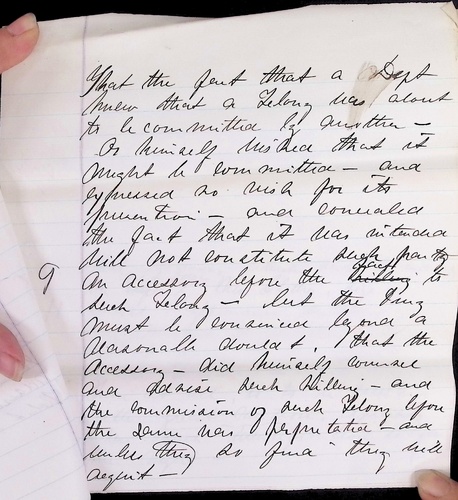 That the fact that a Deft
knew that a Felony was about
to be committed by another —
Or himself wished that it
might be committed — and
expressed no wish for its
prevention — and concealed
the fact that it was intended
will not constitute such party
9 an accessory before the fact to
such Felony — but the Jury
must be convinced beyond a
reasonable doubt, that the
accessory — did himself counsel
and advise such killing — and
the commission of such Felony before
the same was perpetrated — and
unless they so find they will
acquit —